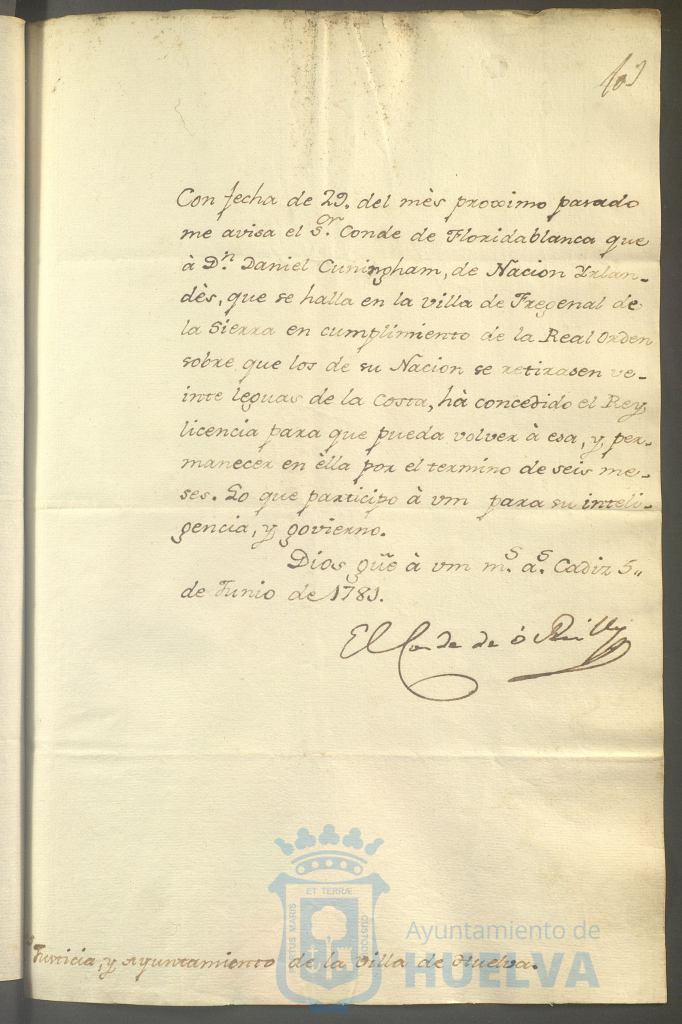 101
Con fecha de 29. del mès proximo pasado
me avisa el Sr. Conde de Floridablanca que
à Dn. Daniel Cuningham, de Nacion Yrlan-
dès, que se halla en la villa de Fregenal de
la Sierra en cumplimiento de la Real Orden
sobre que los de su Nacion se retirasen ve-
inte leguas de la Costa, hà concedido el Rey
licencia para que pueda volver à esa, y per-
manecer en èlla por el termino de seis me-
ses. Lo que participo à vm para su inteli-
gencia, y govierno.
Dios gūe à vm ms. as. Cadiz 5,,
de Junio de 1781.
El Conde de ó Reilly
ET TERRÆ
PORTUS MARIS
CUSTODIA
Ayuntamiento de
HUELVA
Justicia, y Ayuntamiento de la Villa de Huelva.